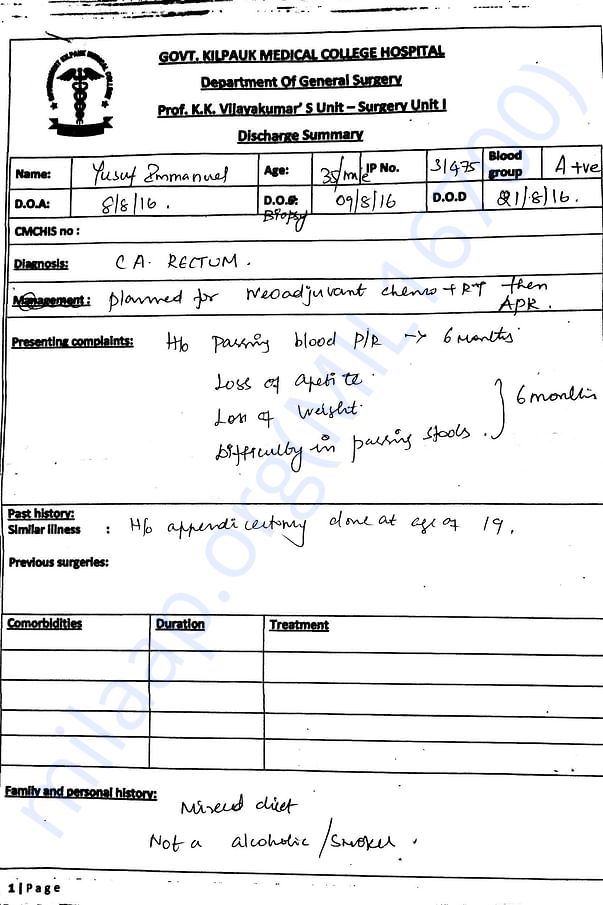 GOVT. KILPAUK MEDICAL COLLEGE HOSPITAL
Department Of General Surgery
Prof. K.K. Vijayakumar' S Unit – Surgery Unit I
Discharge Summary
Name: Yusuf Emmanuel Age: 35/m/e IP No. 31475 Blood group A +ve
D.O.A: 8/8/16. D.O.S: Biopsy 09/8/16 D.O.D 21/8/16.
CMCHIS no :
Diagnosis: CA. RECTUM.
Management: planned for Neoadjuvant chemo + RT then
APR.
Presenting complaints: H/o passing blood P/R -> 6 months
Loss of apetite.
Loss of Weight.
Difficulty in passing stools. } 6 months
Past history:
Similar illness : H/o appendicectomy done at age of 19.
Previous surgeries:
Comorbidities Duration Treatment
Family and personal history:
Mixed diet
Not a alcoholic / Smoker.
1 | Page
milaap.org(MIL46700)